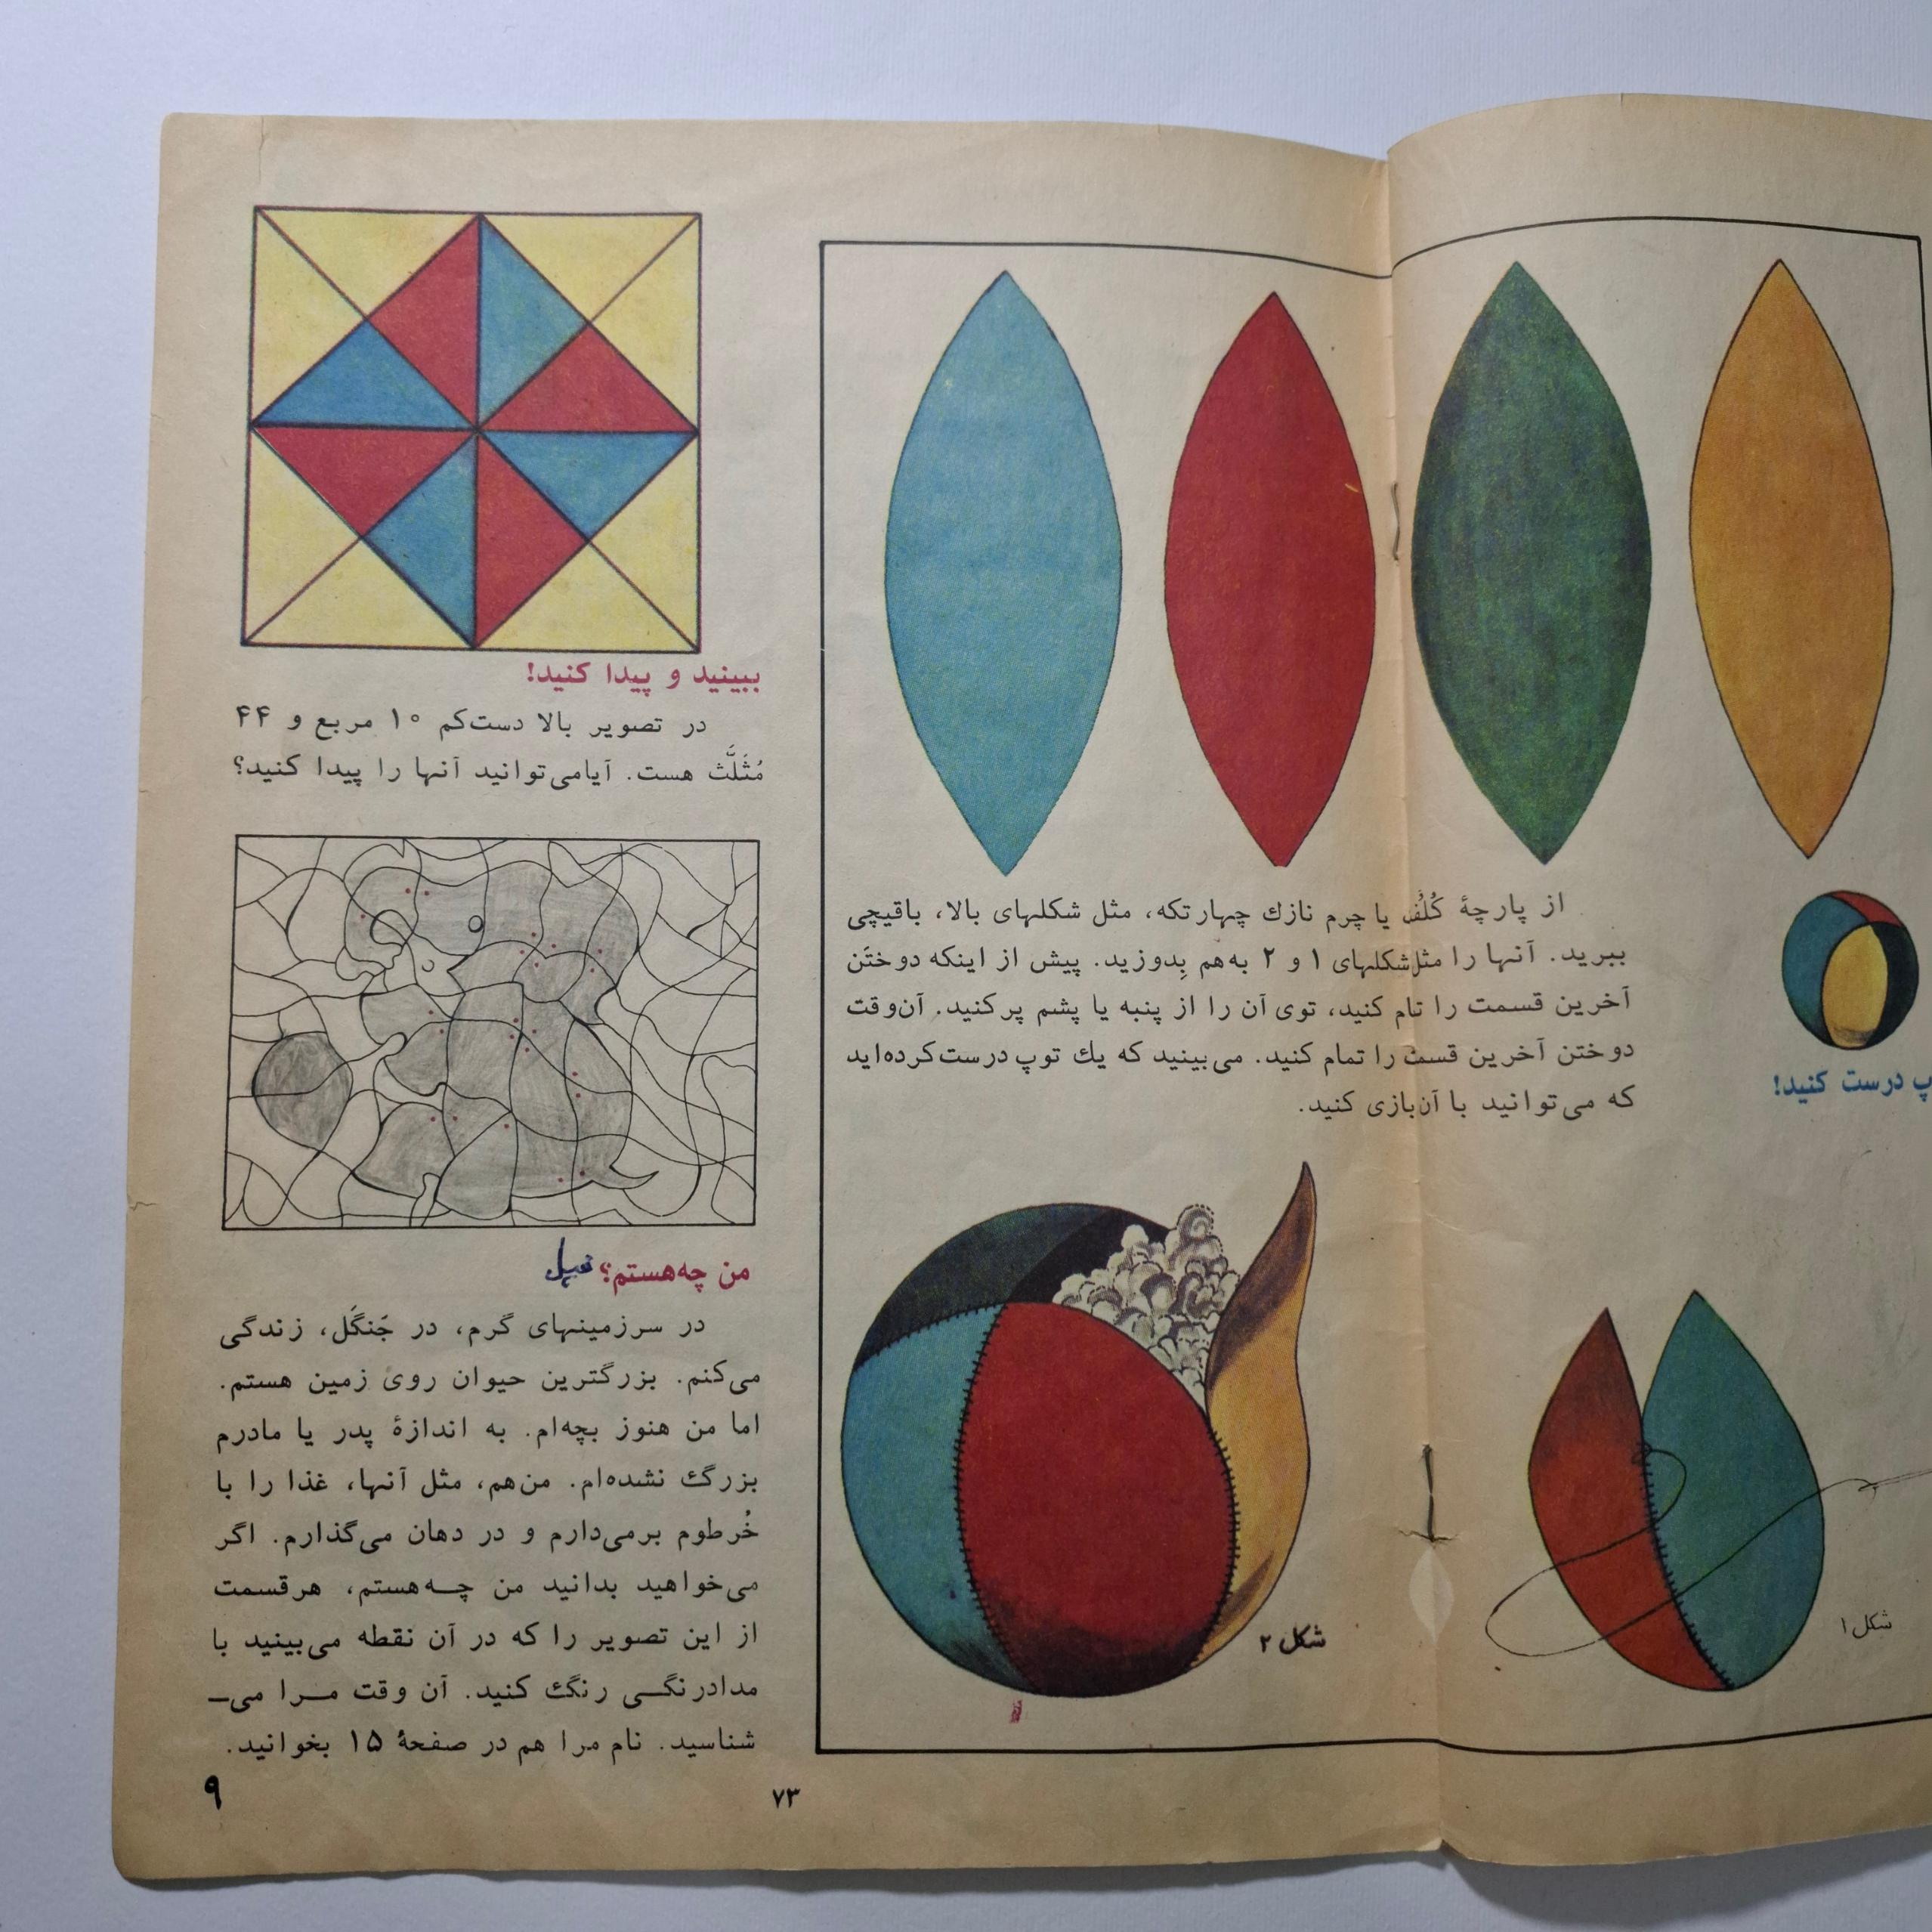 از پارچهٔ کُلُفت یا چرم نازك چهار تکه، مثل شکلهای بالا، باقیچی
ببرید. آنها را مثل شکلهای ۱ و ۲ به‌هم بِدوزید. پیش از اینکه دوختَن
آخرین قسمت را تمام کنید، توی آن را از پنبه یا پشم پر کنید. آن‌وقت
دوختن آخرین قسمت را تمام کنید. می‌بینید که یك توپ درست‌کرده‌اید
که می‌توانید با آن‌بازی کنید.
درست کنید!
شکل ۱
شکل ۲
ببینید و پیدا کنید!
در تصویر بالا دست‌کم ۱۰ مربع و ۴۴
مُثَلَّث هست. آیامی‌توانید آنها را پیدا کنید؟
من چه‌هستم؟ فیل
در سرزمینهای گرم، در جَنگَل، زندگی
می‌کنم. بزرگترین حیوان روی زمین هستم.
اما من هنوز بچه‌ام. به اندازهٔ پدر یا مادرم
بزرگ نشده‌ام. من‌هم، مثل آنها، غذا را با
خُرطوم برمی‌دارم و در دهان می‌گذارم. اگر
می‌خواهید بدانید من چه‌هستم، هرقسمت
از این تصویر را که در آن نقطه می‌بینید با
مدادرنگی رنگ کنید. آن وقت مرا می‌ـ
شناسید. نام مرا هم در صفحهٔ ۱۵ بخوانید.
۹
۷۳